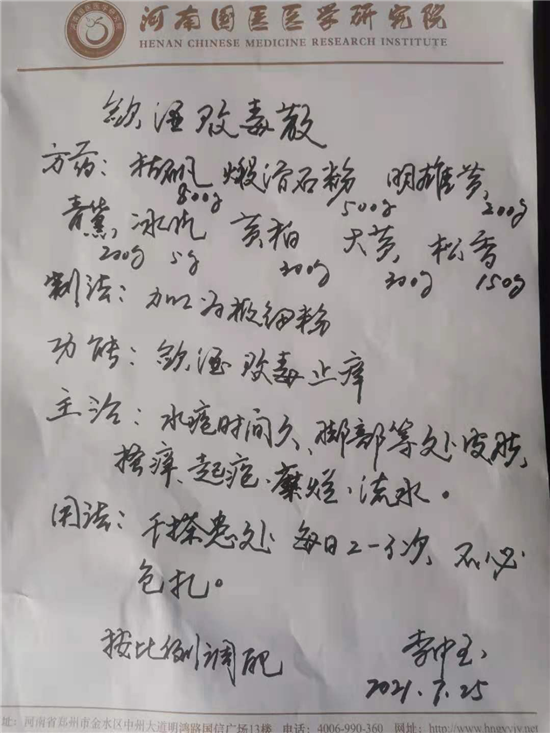 河南国医医学研究院
HENAN CHINESE MEDICINE RESEARCH INSTITUTE
敛湿败毒散
方药：枯矾 煅滑石粉 明雄黄
800g 500g 200g
青黛 冰片 黄柏 大黄 松香
200g 5g 200g 200g 150g
制法：加工为极细粉
功能：敛湿败毒止痒
主治：水疱时间久，脚部等处皮肤
搔痒、起疱、糜烂、流水。
用法：干搽患处 每日2一3次，不必
包扎。
按比例调配 李中玉
2021.7.25
址：河南省郑州市金水区中州大道明鸿路国信广场13楼 电话：4006-990-360 网址：http://www.hngyyjy.net